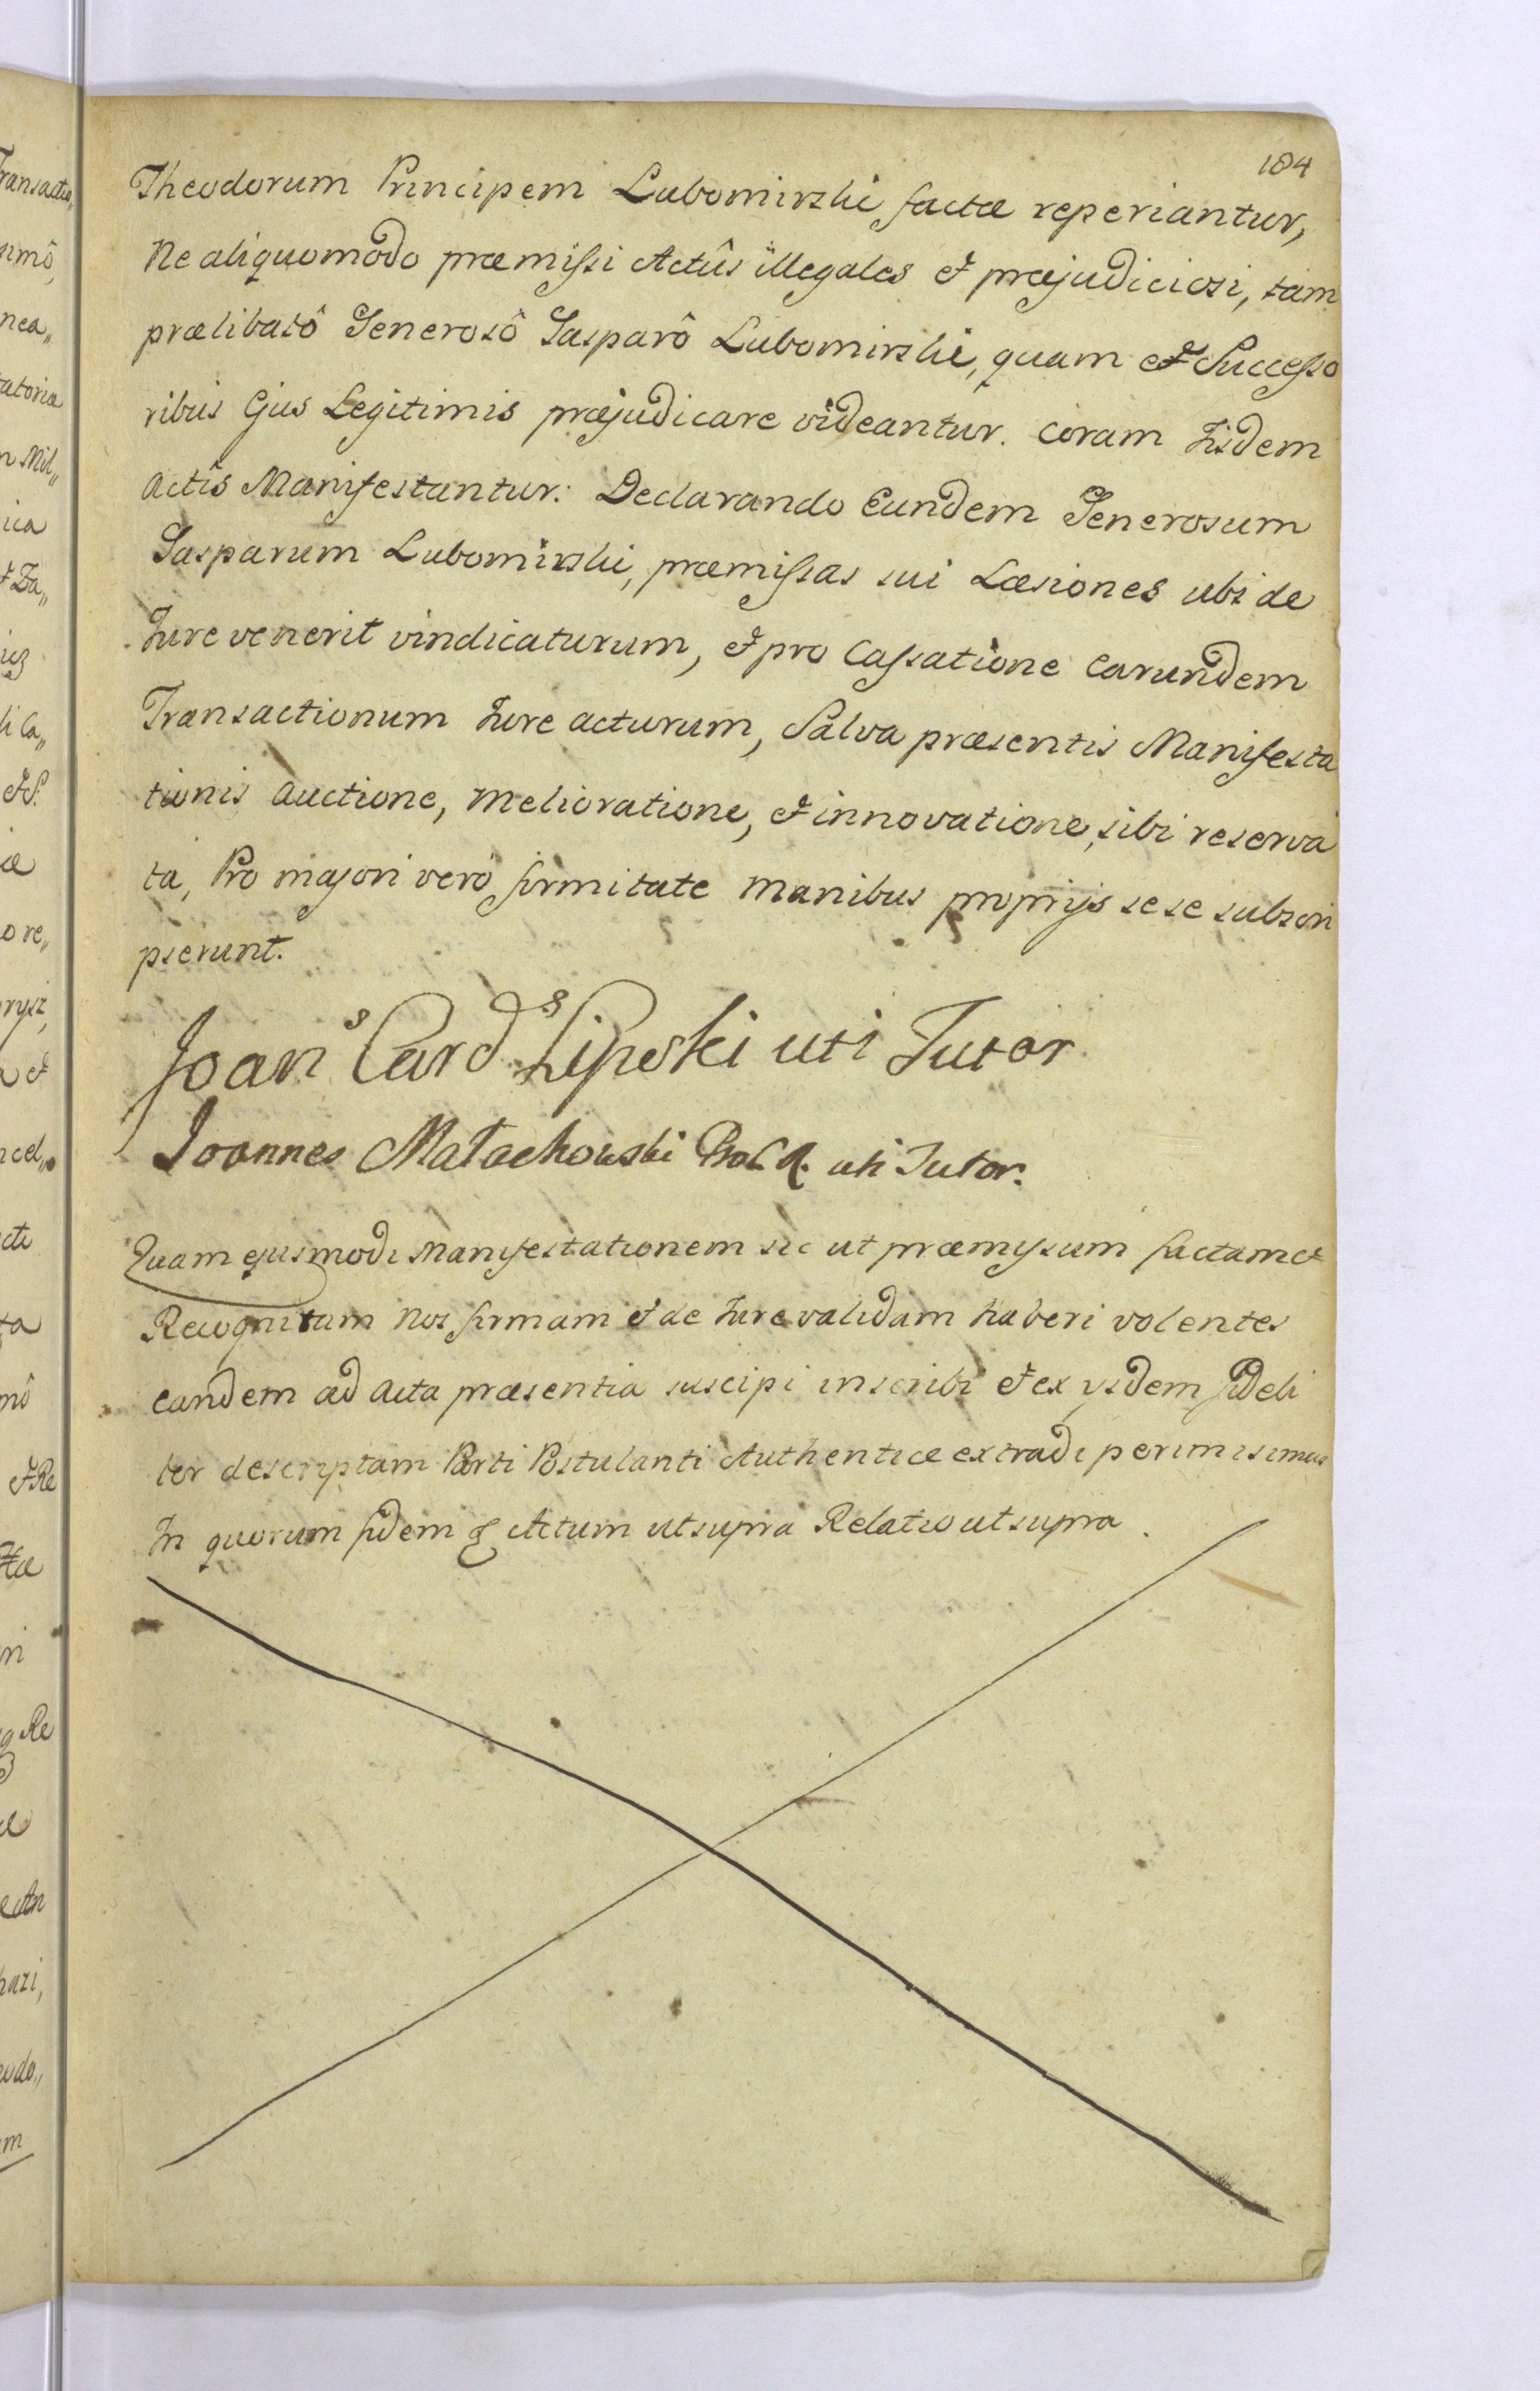 184
Theodorum Principem Lubomirski factæ reperiantur,
Ne aliquomodo præmissi Actûs illegales et præjudiciosi, tam
prælibatô Generosô Gasparô Lubomirski, quam et Successo
ribus Ejus Legitimis præjudicare videantur. coram Iisdem
actis Manifestantur: Declarando Eundem Generosum
Gasparum Lubomirski, præmissas sui Læsiones ubi de
Iure venerit vindicaturum, et pro Cassatione earundem
Transactionum Iure acturum, Salva præsentis Manifesta
tionis auctione, melioratione, et innovatione, sibi reserva
ta, Pro majori verò firmitate manibus proprijs sese subscri
pserunt.
Joan s Card s Lipski uti Tutor
Joannes Małachowski uti Tutor.
Quam ejusmodi Manifestationem sic ut præmissum factam et
Recognitam Nos firmam et de Iure validam haberi volentes
eandem ad Acta præsentia suscipi inscribi et ex ysdem fideli
ter descriptam Parti Postulanti Authentice extradi permisimus
In quorum fidem Actum ut supra Relatio ut supra.